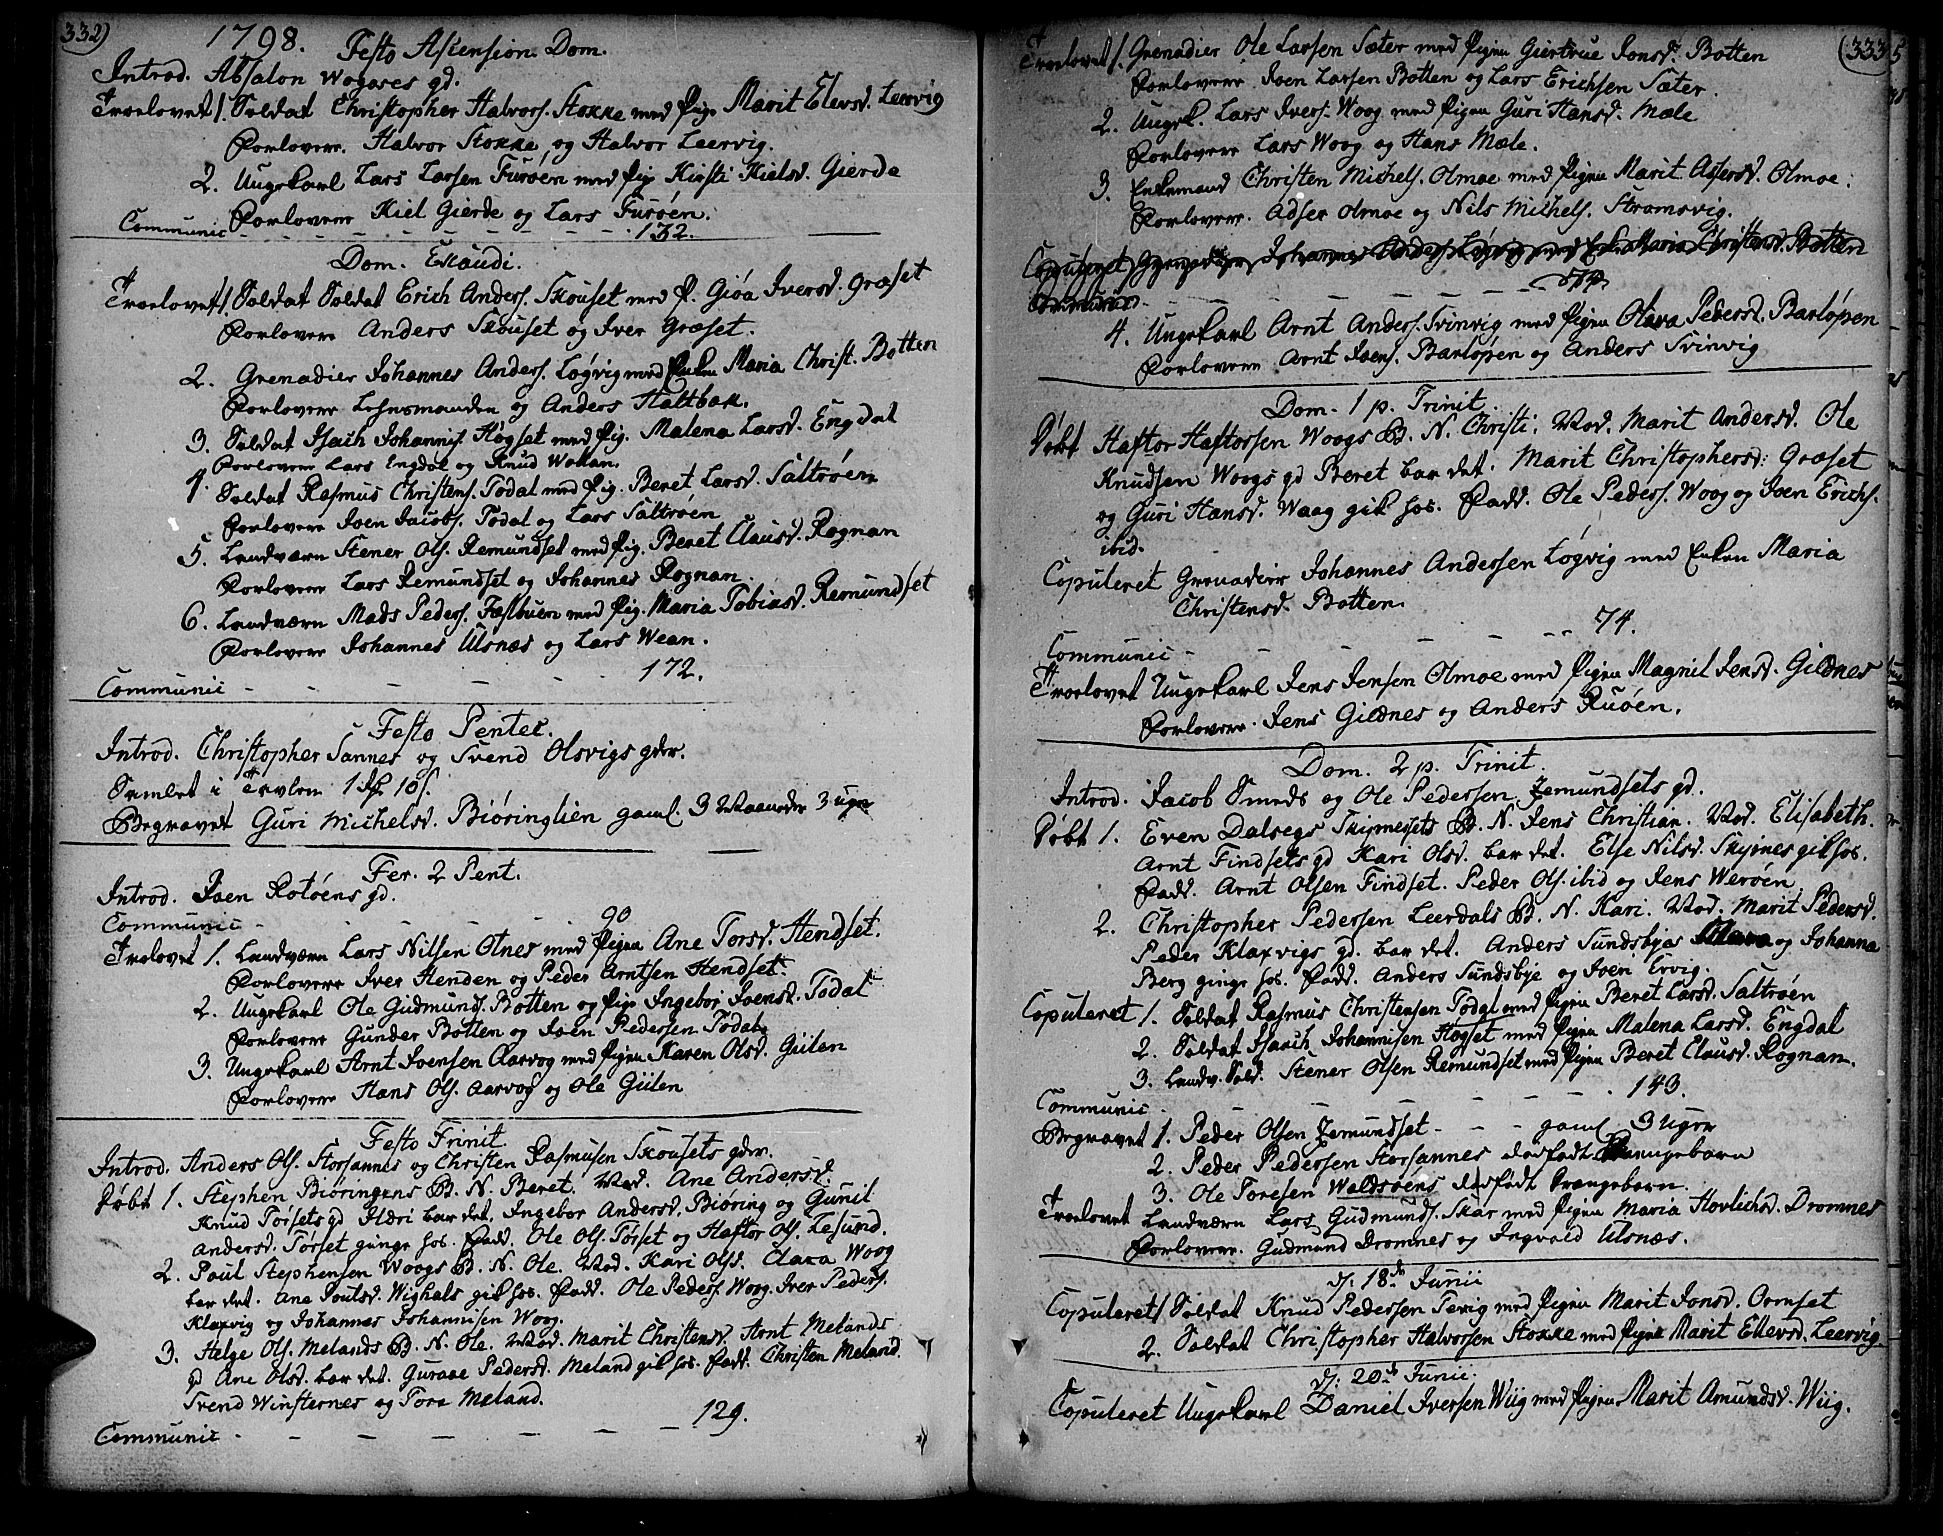 332)
1798. Festo Ascension. Dom.
Introd. Absalon Wogases gd.
Troelovet 1. Soldat Christopher Halvors. Stokke med Pig. Marit Elevsd. Leervig
Forlovere Halvor Stokke og Halvor Leervig.
2. Ungekarl Lars Larsen Furøen med Pig. Kirsti Kielsd. Gierde
Forlovere Kiel Gierde og Lars Furøen.
Communic - - - 132.
Dom. Exaudi.
Troelovet 1. Soldat Soldat Erich Anders. Skouset med P. Giøa Iversd. Græset
Forlovere Anders Skouset og Iver Græset.
2. Grenadier Johannes Anders. Løgvig med Enken Maria Christ. Botten
Forlovere Lehnsmanden og Anders Haltbak.
3. Soldat Isach Johannis. Høgset med Pig. Malena Larsd. Engdal
Forlovere Lars Engdal og Knud Wollan.
4. Soldat Rasmus Christens. Todal med Pig. Beret Larsd. Saltrøen
Forlovere Joen Jacobs. Todal og Lars Saltrøen
5. Landværn Stener Ols. Remundset med Pig. Beret Clausd. Rognan
Forlovere Lars Remundset og Johannes Rognan.
6. Landværn Mads Peders. Fælbuen med Pig. Maria Tobiasd. Remundset
Forlovere Johannes Ulsnæs og Lars Wean.
Communic - - - 172.
Festo Pentec.
Introd. Christopher Sannes og Svend Olsvigs gdr.
Samlet i Tavlen 1 10 s.
Begravet Guri Michelsd. Biøringlien gaml. 3 Maaneder 3 uger
Fer. 2 Pent.
Introd. Joen Rotøens gd.
Communic - - - 90
Trolovet 1. Landværn Lars Nilsen Otnes med Pigen Ane Torsd. Hendset.
Forlovere Iver Henden og Peder Arntsen Hendset.
2. Ungekarl Ole Gudmunds. Botten og Pige Ingebor Joensd. Todal
Forlovere Gunder Botten og Joen Pedersen Todal
3. Ungekarl Arnt Joensen Aarvog med Pigen Karen Olsd. Giilen
Forlovere Hans Ols. Aarvog og Ole Giilen
Festo Trinit.
Introd. Anders Ols. Storsannes og Christen Rasmusen Skousets gdr.
Døbt 1. Stephen Biøringens B. N. Beret. Vod. Ane Andersd.
Knud Torsets gd Hæri bar det, Ingebor Andersd. Biøring og Gunil
Andersd. Torset ginge hos. Fadd. Ole Ols. Torset og Haftor Ols. Lesund.
2. Poul Stephensen Woogs B. N. Ole. Vod. Kari Olsd. Clara Woog
bar det. Ane Poulsd. Wighals gik hos. Fadd. Ole Peders. Woog. Iver Peders.
Klaxvig og Johannes Johannisen Woog.
3. Helge Ols. Melands B. N. Ole. Vod. Marit Christensd. Arnt Melands
gd Ane Olsd. bar det. Guraae Pedersd. Meland gik hos. Fadd. Christen Meland.
Svend Winsternes og Tore Meland.
Communic - - - 129.
(333
Troelovet 1. Grenadier Ole Larsen Sæter med Pigen Giertrue Jonsd. Botten
Forlovere Joen Larsen Botten og Lars Erichsen Sæter.
2. Ungek. Lars Ivers. Woog med Pigen Guri Hansd. Mæle
Forlovere Lars Woog og Hans Mæle.
3. Enkemand Christen Michels. Olmoe med Pigen Marit Adsersd. Olmoe.
Forlovere. Adser Olmoe og Nils Michels. Strømsvig.
Copuleret Grenadier Johannes Anders. Løgvig med Enken Maria Christensd. Botten
Communic - - - 74
4. Ungekarl Arnt Anders. Svinvig med Pigen Olava Pedersd. Barløpen
Forlovere Arnt Joens. Barløpen og Anders Svinvig
Dom. 1 p. Trinit.
Døbt Haftor Haftorsen Woogs B. N. Christi. Vod. Marit Andersd. Ole
Knudsen Woogs gd Beret bar det. Marit Christophersd. Græset
og Guri Hansd. Waag gik hos. Fadd. Ole Peders. Woog og Joen Erichs.
ibid.
Copuleret Grenadier Johannes Andersen Løgvig med Enken Maria
Christensd. Botten.
Communic - - - 74.
Troelovet Ungekarl Jens Jensen Olmoe med Pigen Magnil Jensd. Gildnes
Forlovere. Jens Gildnes og Anders Ruøen.
Dom. 2 p. Trinit.
Introd. Jacob Smeds og Ole Pedersen Remundsets gd.
Døbt 1. Even Dalsegs Skipnessets B. N. Jens Christian. Vod. Elisabeth.
Arnt Findsets gd Kari Olsd. bar det. Else Nilsd. Skipnes gik hos.
Fadd. Arnt Olsen Findset. Peder Ols. ibid og Jens Werøen.
2. Christopher Pedersen Leerdals B. N. Kari. Vod. Marit Pedersd.
Peder Klaxvigs gd. bar det. Anders Sundsbyes og Johanna
Berg ginge hos. Fadd. Anders Sundsbye og Joen Ervig.
Copuleret 1. Soldat Rasmus Christensen Todal med Pigen Beret Larsd. Saltrøen
2. Soldat Isach Johannisen Høgset med Pigen Malena Larsd. Engdal
3. Landv. Sold. Stener Olsen Remundset med Pigen Beret Clausd. Rognan.
Communic - - - 143.
Begravet 1. Peder Olsen Remundset - - - gaml 3 uger
2. Peder Pedersen Storsannes dødfødt Drengebarn
3. Ole Toresen Waldsøens dødfødt Drængebarn.
Troelovet Landværn Lars Gudmunds. Skar med Pigen Maria Hovlichsd. Dromnes
Forlovere. Gudmund Dromnes og Ingvald Ulsnæs.
d. 18de Junii
Copuleret 1. Soldat Knud Pedersen Tevig med Pigen Marit Jonsd. Ormset
2. Soldat Christopher Halvorsen Stokke med Pigen Marit Ellevsd. Leervig.
d. 20de Junii.
Copuleret Ungekarl Daniel Iversen Wiig med Pigen Marit Amundsd. Wiig.